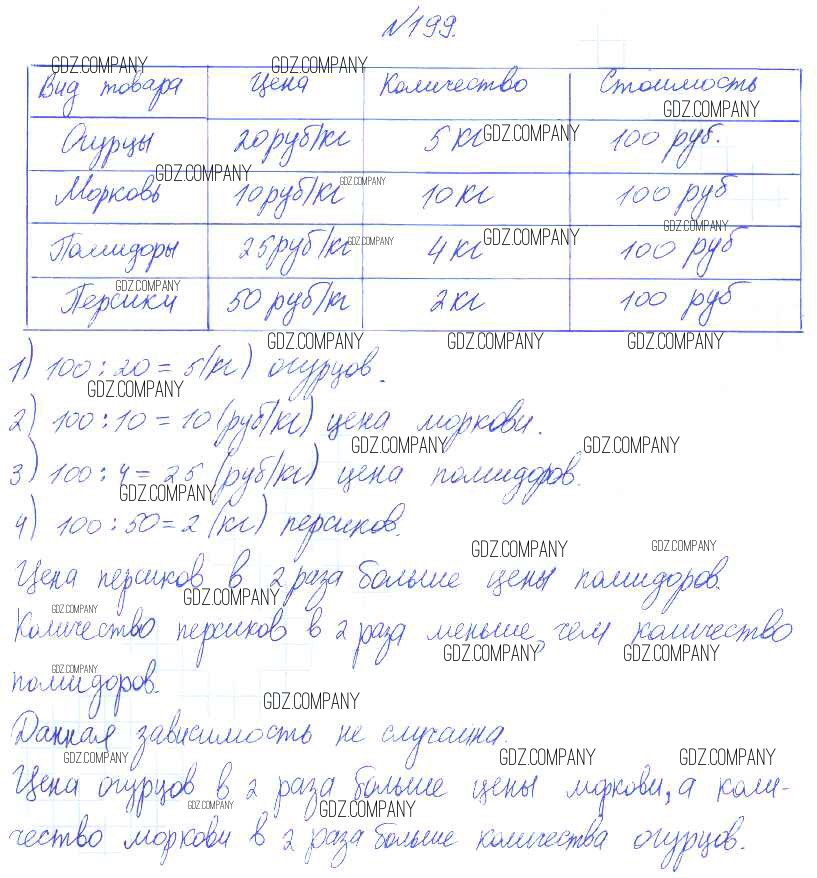 №199.
GDZ.COMPANY GDZ.COMPANY
Вид товара Цена Количество Стоимость
GDZ.COMPANY
Огурцы 20 руб/кг 5 кг GDZ.COMPANY 100 руб.
GDZ.COMPANY GDZ.COMPANY
Морковь 10 руб/кг 10 кг 100 руб
GDZ.COMPANY
Помидоры 25 руб/кг GDZ.COMPANY 4 кг GDZ.COMPANY 100 руб
GDZ.COMPANY
Персики 50 руб/кг 2 кг 100 руб
GDZ.COMPANY GDZ.COMPANY GDZ.COMPANY
1) 100 : 20 = 5 (кг) огурцов.
GDZ.COMPANY
2) 100 : 10 = 10 (руб/кг) цена моркови.
GDZ.COMPANY GDZ.COMPANY
3) 100 : 4 = 25 (руб/кг) цена помидоров.
GDZ.COMPANY
4) 100 : 50 = 2 (кг) персиков.
GDZ.COMPANY GDZ.COMPANY
Цена персиков в 2 раза больше цены помидоров.
GDZ.COMPANY GDZ.COMPANY
Количество персиков в 2 раза меньше, чем количество
GDZ.COMPANY GDZ.COMPANY GDZ.COMPANY
помидоров.
GDZ.COMPANY
Данная зависимость не случайна.
GDZ.COMPANY GDZ.COMPANY GDZ.COMPANY
Цена огурцов в 2 раза больше цены моркови, а коли-
GDZ.COMPANY GDZ.COMPANY
чество моркови в 2 раза больше количества огурцов.